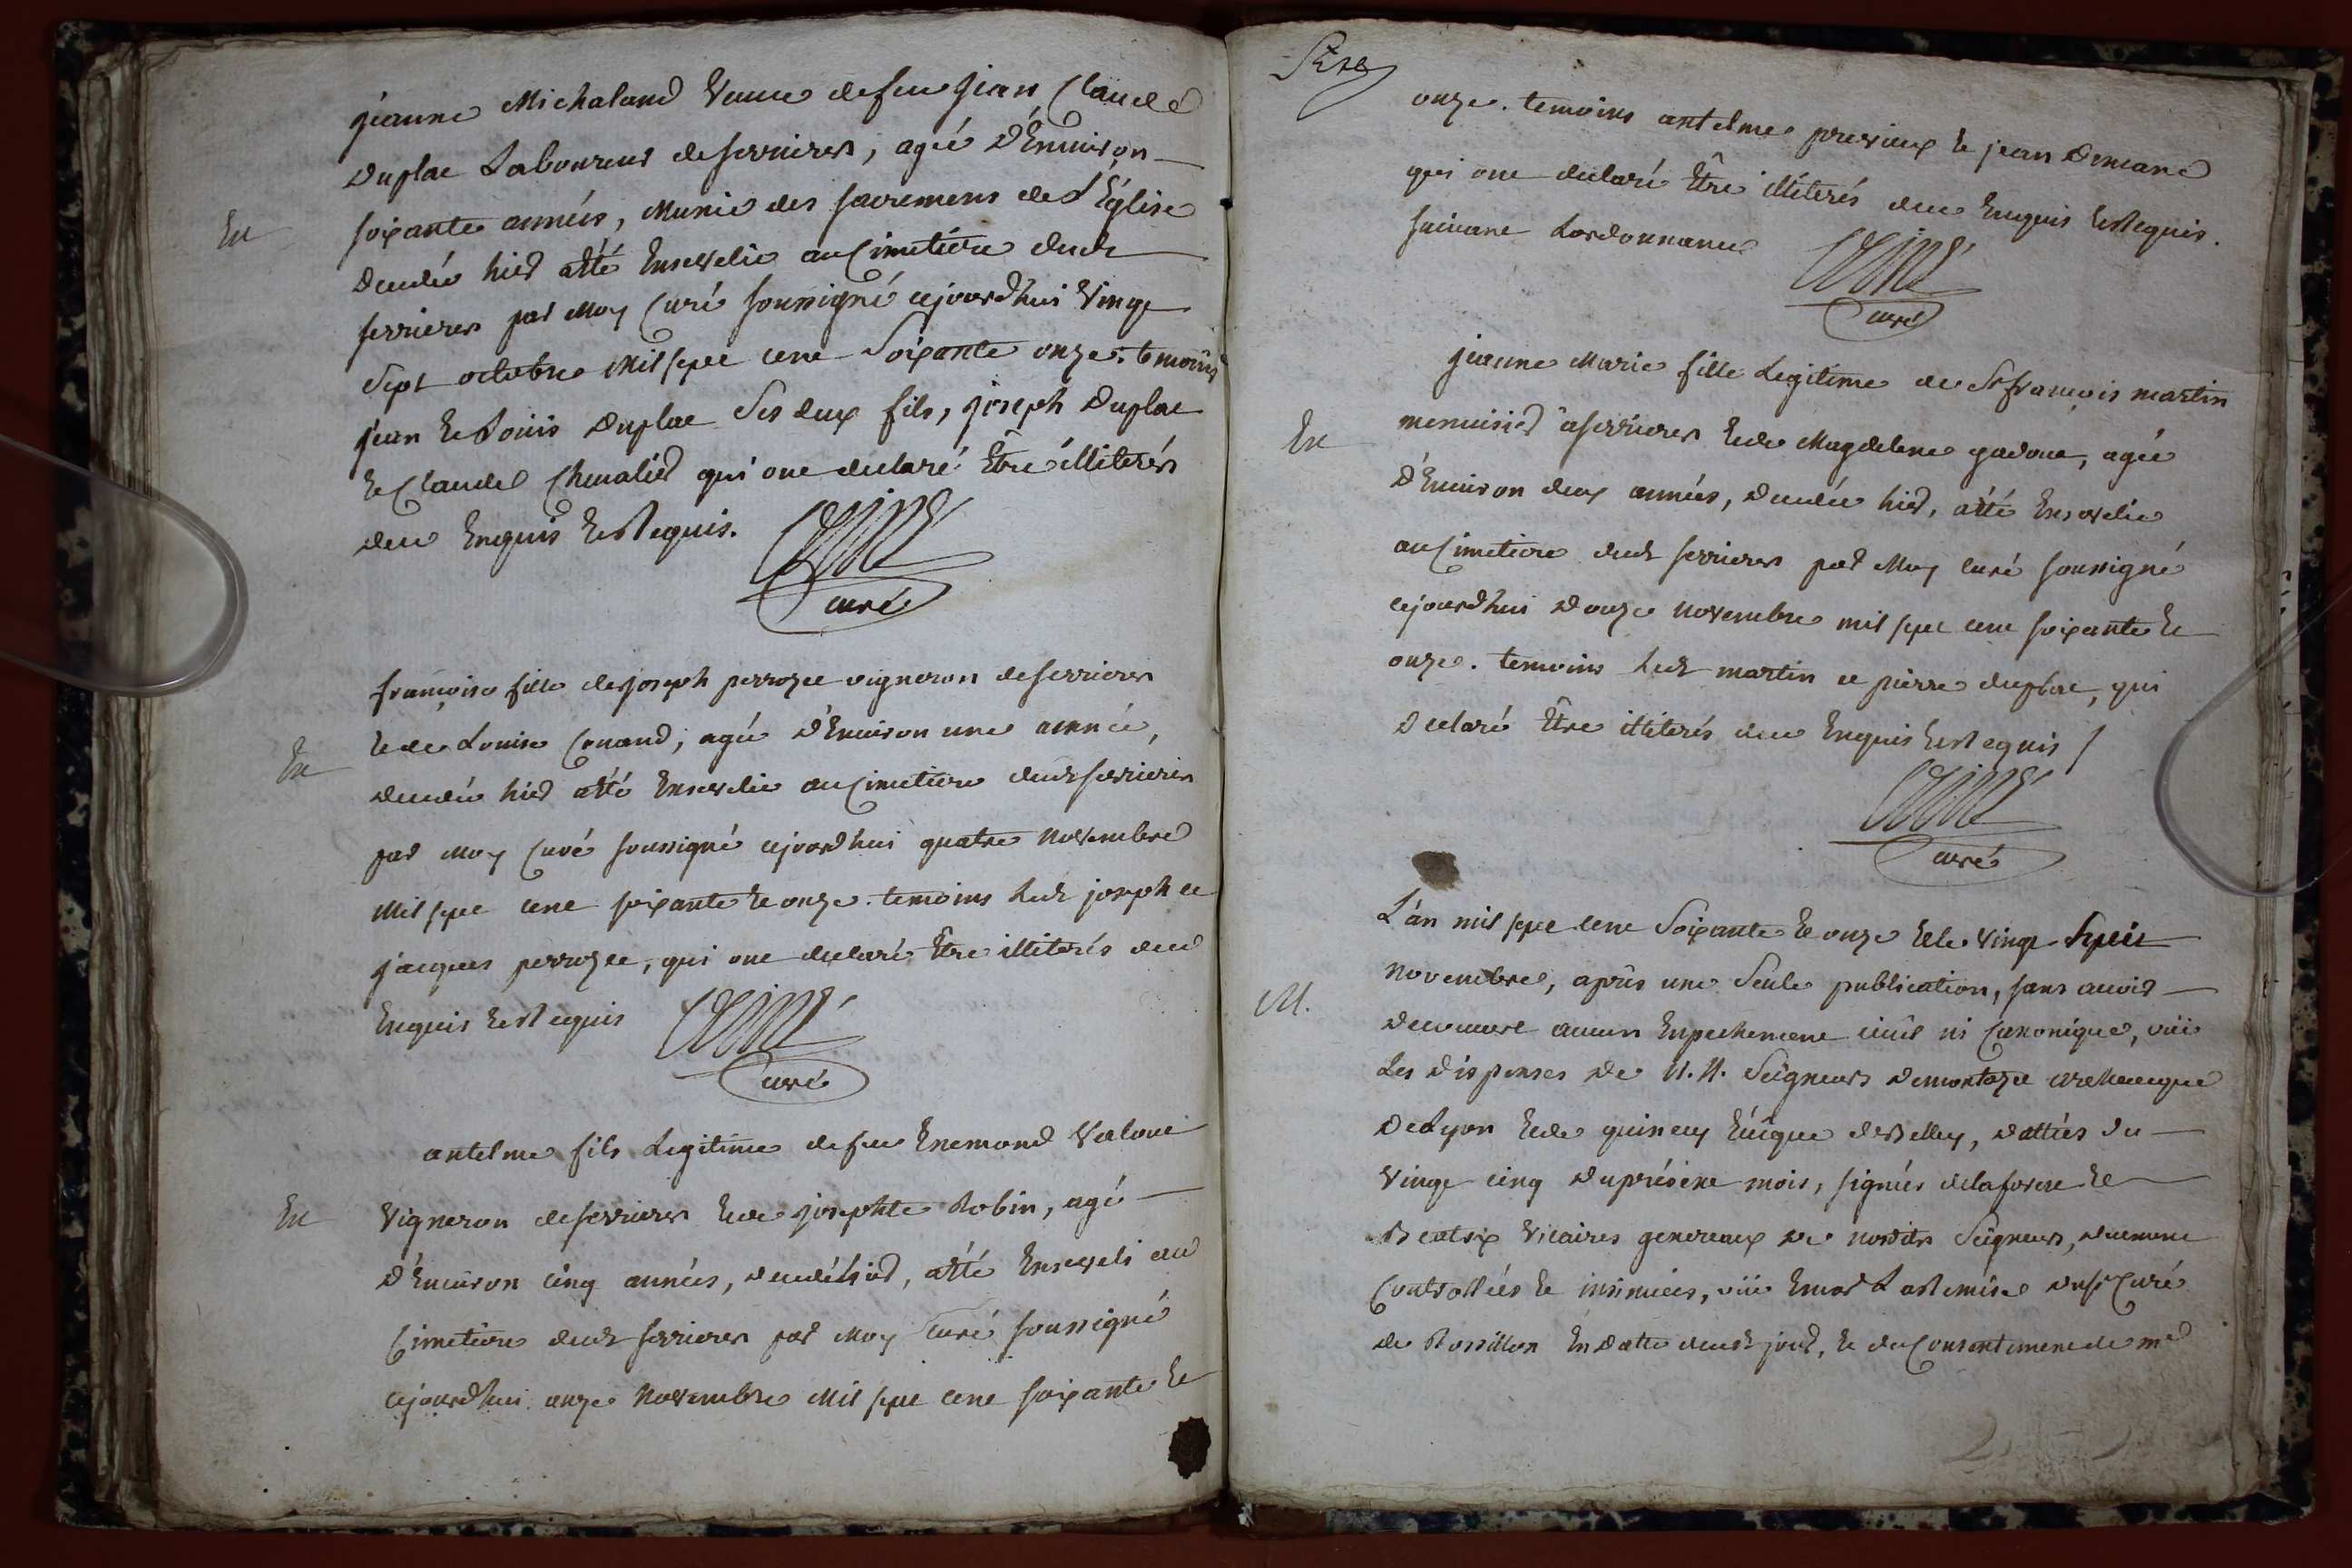 jeanne Michaland veuve de feu jean Claude
Duplac Laboureur de serrieres, agée D'Environ
En
soixante années, Munie des sacremens de L'Église
Decedée hier a été Ensevelie au Cimetiere dudt
serrieres par Moy Curé soussigné cejourdhui vingt
Sept octobre Mil sept cent Soixante onze. temoins
jean et Louis Duplac Ses deux fils, joseph Duplac
et Claude Chevalier qui ont declaré Être illiterés
de ce Enquis et Requis.
curé
francoise fille de joseph perrozet vigneron de serrieres
En
et de Louise Conand, agée D'Environ une année,
Decedée hier a été Ensevelie au Cimetiere dudt serrieres
par Moy Curé soussigné cejourdhui quatre Novembre
Mil sept cent soixante et onze. temoins Ledt joseph et
jacques perrozet, qui ont declaré Être illiterés de ce
Enquis et Requis
curé
antelme fils Legitime de feu Enemond
En
Vigneron de serrieres et de josephte Robin, agé
D'Environ cinq années, decedé hier, a été Enseveli au
Cimetiere dudt serrieres par Moy curé soussigné
cejourdhui onze Novembre Mil sept cent soixante et
onze. temoins antelme et jean
qui ont declaré Être illiterés de ce Enquis et Requis.
suivant Lordonnance
curé
jeanne Marie fille Legitime de Sr francois martin
En
menuisier a serrieres et de Magdelene, agée
D'Environ deux années, Decedée hier, a été Ensevelie
au Cimetiere dudt serrieres par Moy curé soussigné
cejourdhui Douze Novembre mil sept cent soixante et
onze. temoins Ledt martin et pierre duplac, qui
Declaré Être illiterés de ce Enquis et Requis
curé
L'an mil sept cent Soixante et onze et le vingt Sept
M.
Novembre, après une Seule publication, sans avoir
Decouvert aucun Enpechement civil ni Canonique, vüe
Les Dispenses De N.N. Seigneurs Demontazet archeveque
De Lyon et de quincey Evêque de Belley, dattées du
vingt cinq du présent mois, signées delaforest et
Beatrix vicaires generaux de nosdits Seigneurs, duement
Controllées et insinuées, vüe Encor La Remise du sr Curé
de Rossillon En Datte dudt jour, et du Consentement de